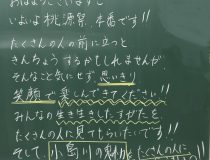 おはようございます
いよいよ桃源祭、本番です!!
たくさんの人の前に立つと
きんちょうするかもしれませんが、
そんなこと気にせず、思いきり
笑顔で楽しんできてください!!
みんなの生き生きしたすがたを、
たくさんの人に見てもらいたいです!!
そして、小島川の魅力を
たくさんの人に